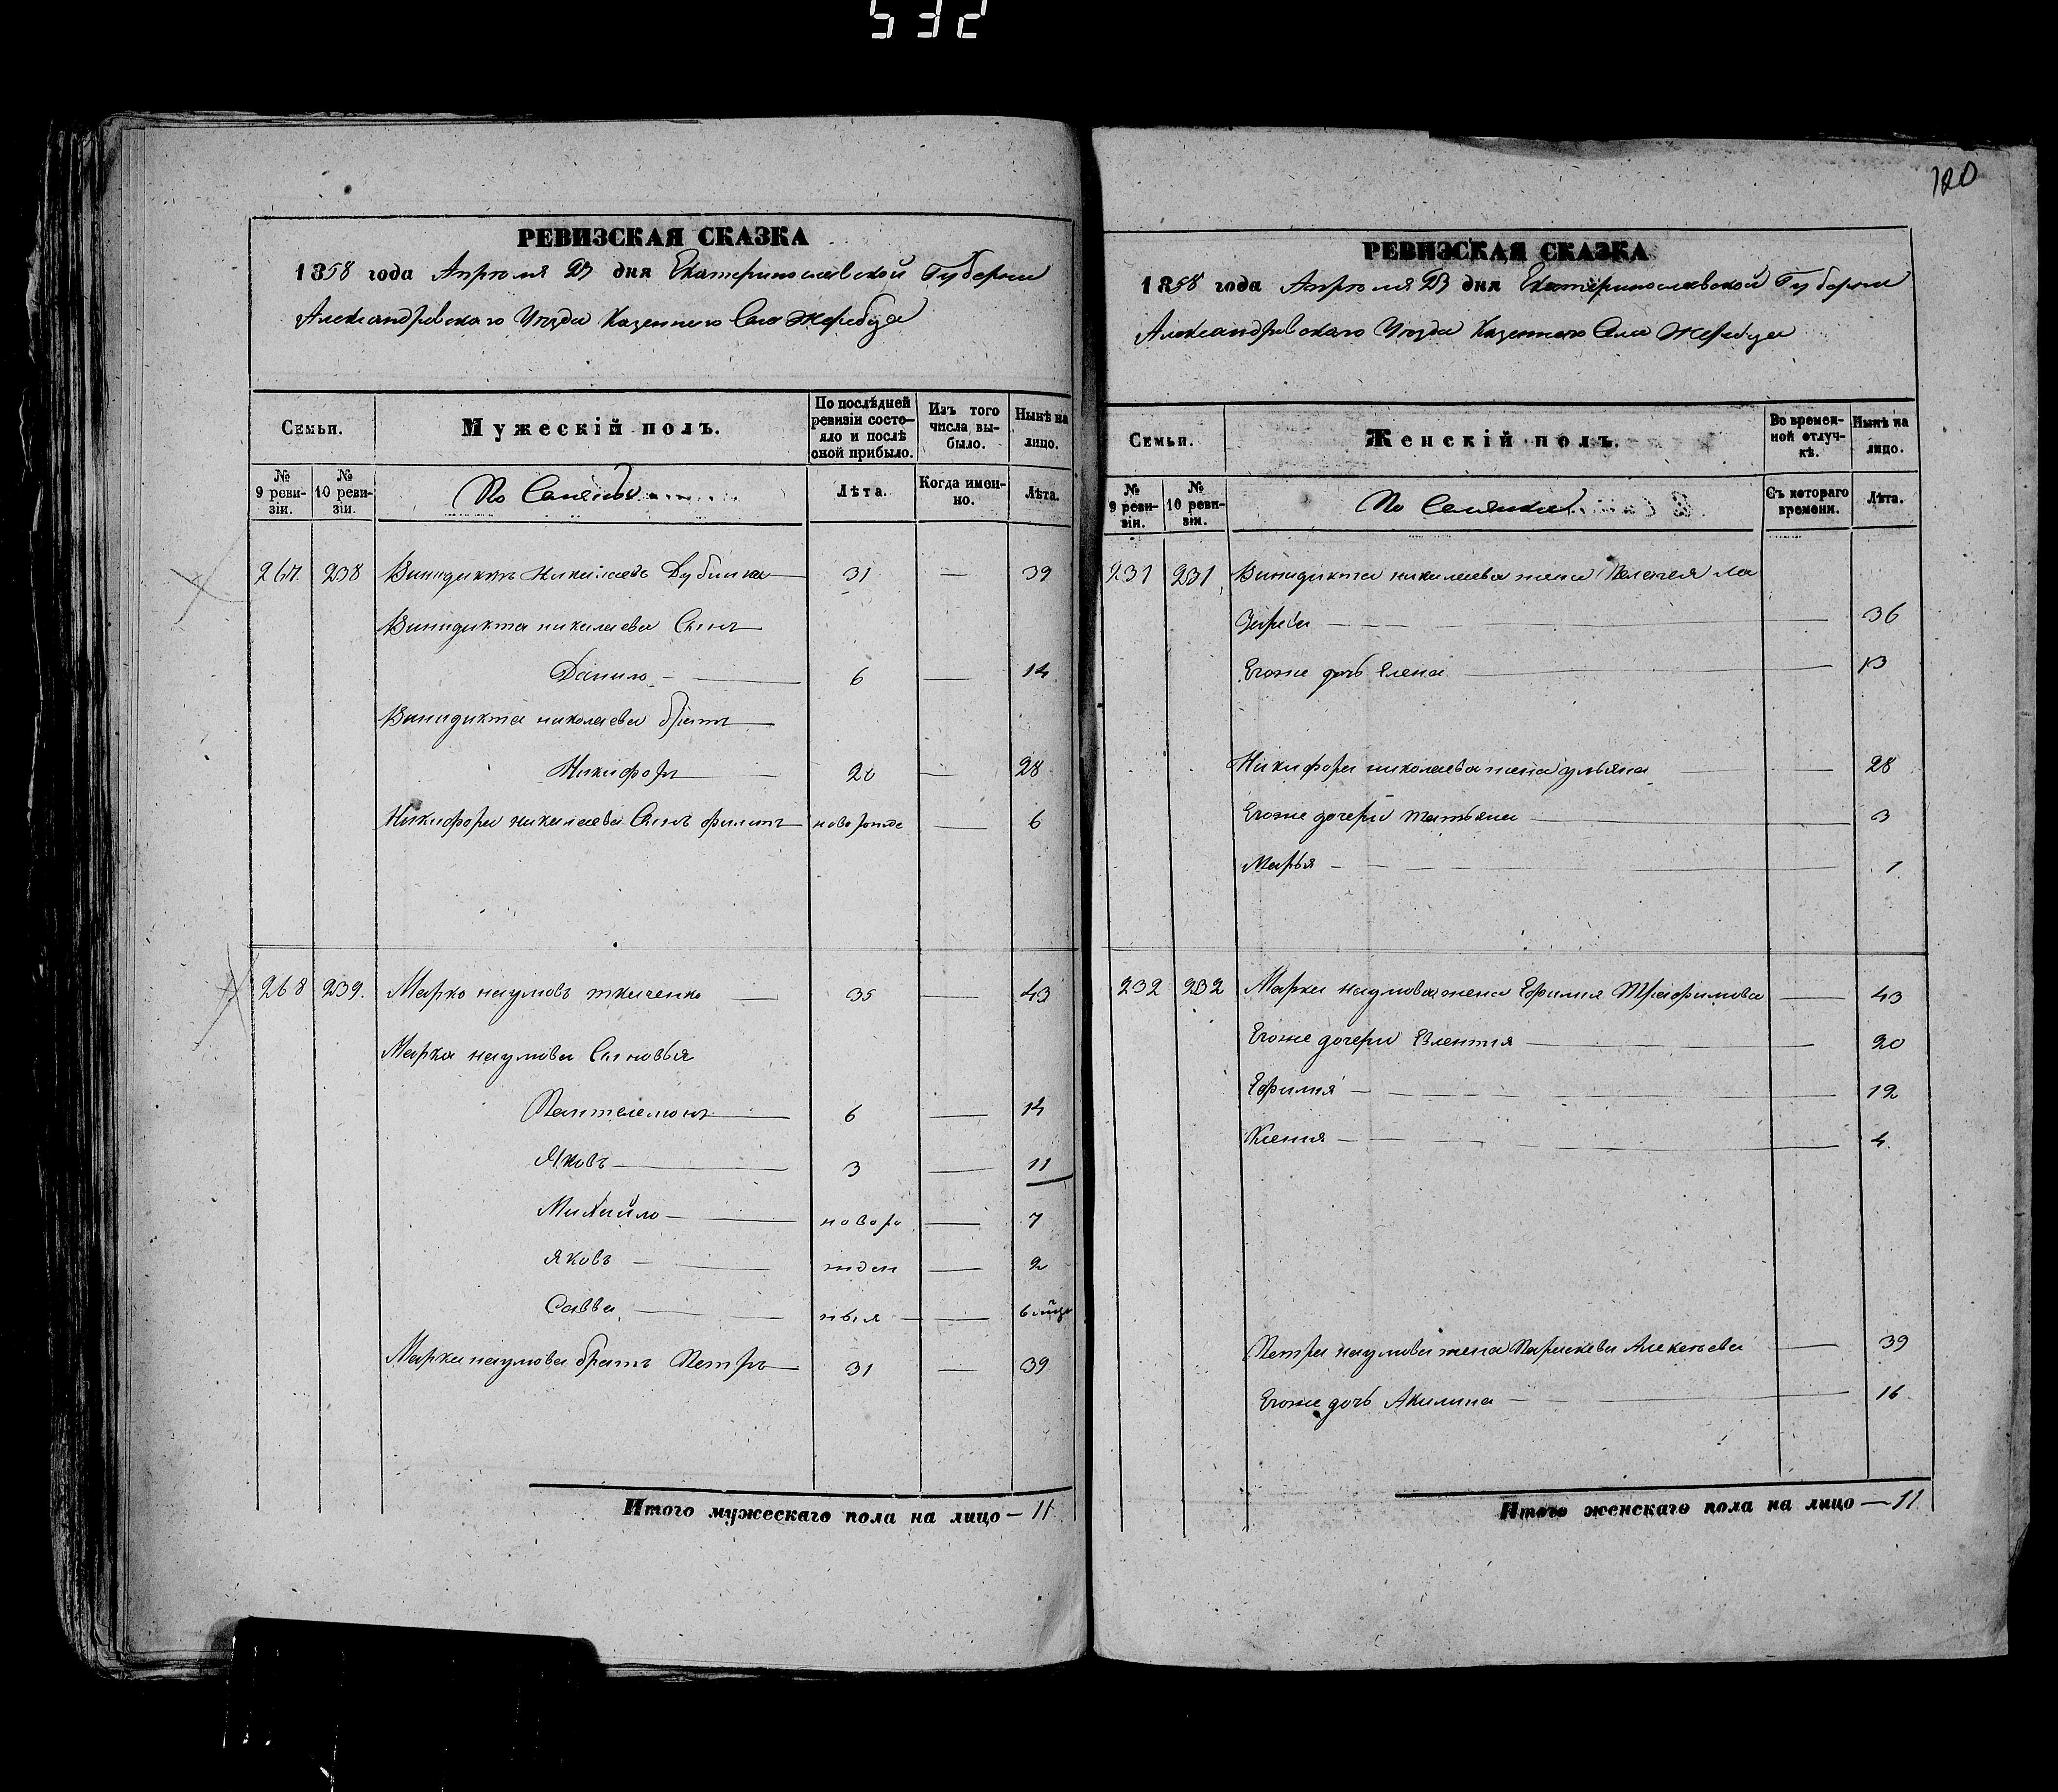 532
120
РЕВИЗСКАЯ СКАЗКА
1858 года Апреля 23 дня Екатеринославской Губернии
Александровскаго Уезда Казеннаго Села Жеребца
Семьи.
Мужескій полъ.
По послѣдней ревизіи состояло и послѣ оной прибыло.
Изъ того числа выбыло.
Нынѣ на лицо.
№ 9 ревизіи.
№ 10 ревизіи.
Лѣта.
Когда именно.
Лѣта.
267. 238 Винидиктъ Николаевъ Дубина 31 — 39
Винидикта николаева Сынъ
Данило — 6 — 14
Винидикта николаева братъ
Никифоръ 20 — 28
Никифора николаева Сынъ филипъ новорожде — 6
268 239. Марко наумовъ ткаченко — 35 — 43
Марка наумова Сыновья
Пантелемонъ 6 — 14
Яковъ — 3 — 11
Михайло — новоро — 7
Яковъ — жден — 2
Савва — ныя — 6
Марка наумова братъ Петръ 31 — 39
Итого мужескаго пола на лицо — 11
РЕВИЗСКАЯ СКАЗКА
1858 года Апреля 23 дня Екатеринославской Губернии
Александровскаго Уезда Казеннаго Села Жеребца
Семьи.
Женскій полъ.
Во временной отлучкѣ.
Нынѣ на лицо.
№ 9 ревизіи.
№ 10 ревизіи.
Съ котораго времени.
Лѣта.
231 231 Винидикта николаева жена Пелагея Ла
зарева — 36
Егоже дочь Елена — 13
Никифора николаева жена ульяна — 28
Егоже дочери татьяна — 3
Марья — 1
232 232 Марка наумова жена Ефимия Трафимова — 43
Егоже дочери — 20
Ефимия — 19
Ксения — 4.
Петра наумова жена Параскева Алексеева — 39
Егоже дочь Акилина — 16
Итого женскаго пола на лицо — 11